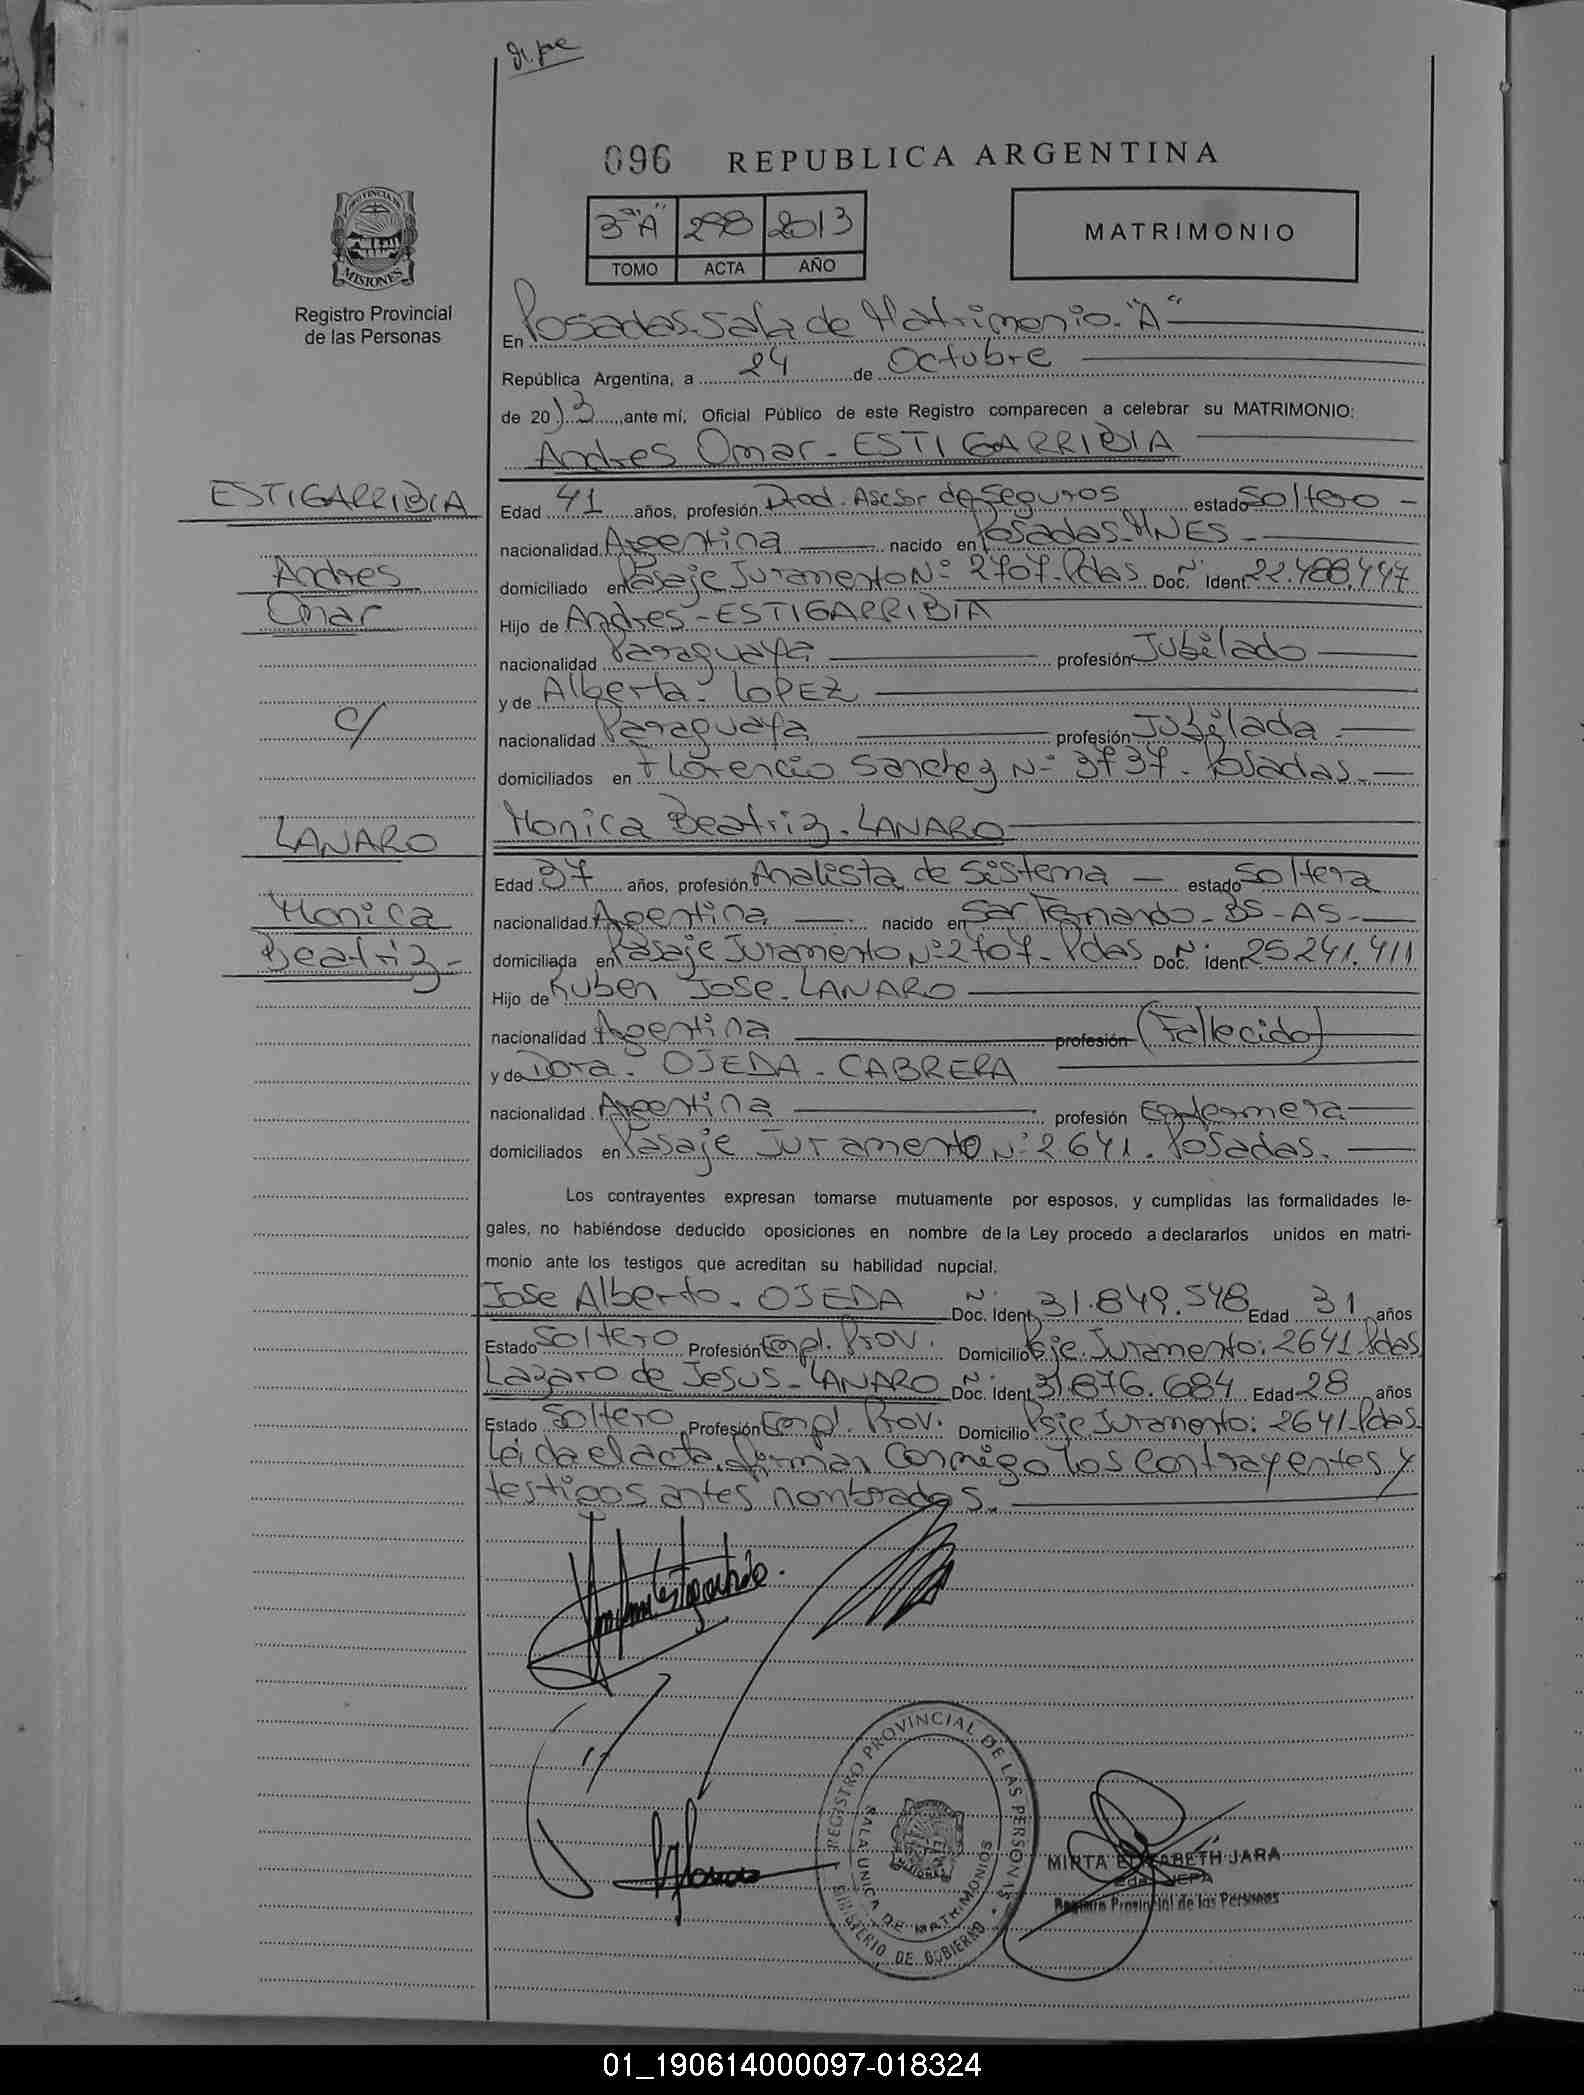 096 REPUBLICA ARGENTINA
3º "A" 298 2013
TOMO ACTA AÑO
MATRIMONIO
MISIONES
Registro Provincial
de las Personas
En Posadas. Sala de Matrimonio. "A"
República Argentina, a 24 de Octubre
de 2013, ante mí, Oficial Público de este Registro comparecen a celebrar su MATRIMONIO:
Andres Omar - ESTIGARRIBIA
ESTIGARRIBIA
Edad 41 años, profesión Prod. Asesor de Seguros estado Soltero -
nacionalidad Argentina nacido en Posadas. MNES -
Andres
domiciliado en Pasaje Juramento Nº 2707. Pdas Doc. Nº Ident. 22.488.447
Omar
Hijo de Andres - ESTIGARRIBIA
nacionalidad Paraguaya profesión Jubilado
y de Alberta - LOPEZ
c/
nacionalidad Paraguaya profesión Jubilada -
domiciliados en Florencio Sanchez Nº 3737 - Posadas.
LANARO
Monica Beatriz - LANARO
Edad 37 años, profesión Analista de Sistema estado Soltera
Monica
nacionalidad Argentina nacido en San Fernando - BS - AS -
Beatriz -
domiciliada en Pasaje Juramento Nº 2707 - Pdas Doc. Nº Ident. 25.241.411
Hijo de Ruben Jose - LANARO
nacionalidad Argentina profesión (Fallecido)
y de Dora - OJEDA - CABRERA
nacionalidad Argentina profesión Enfermera
domiciliados en Pasaje Juramento Nº 2641. Posadas.
Los contrayentes expresan tomarse mutuamente por esposos, y cumplidas las formalidades le-
gales, no habiéndose deducido oposiciones en nombre de la Ley procedo a declararlos unidos en matri-
monio ante los testigos que acreditan su habilidad nupcial.
Jose Alberto - OJEDA Doc. Nº Ident. 31.849.548 Edad 31 años
Estado Soltero Profesión Empl. Prov. Domicilio Psje. Juramento: 2641 Pdas
Lazaro de Jesus - LANARO Doc. Nº Ident. 31.876.684 Edad 28 años
Estado Soltero Profesión Empl. Prov. Domicilio Psje Juramento: 2641 - Pdas.
Leida el acta, firman conmigo los contrayentes y
testigos antes nombrados.
REGISTRO PROVINCIAL DE LAS PERSONAS
SALA UNICA DE MATRIMONIOS
MINISTERIO DE GOBIERNO
MIRTA ELIZABETH JARA
Registro Provincial de las Personas
01_190614000097-018324